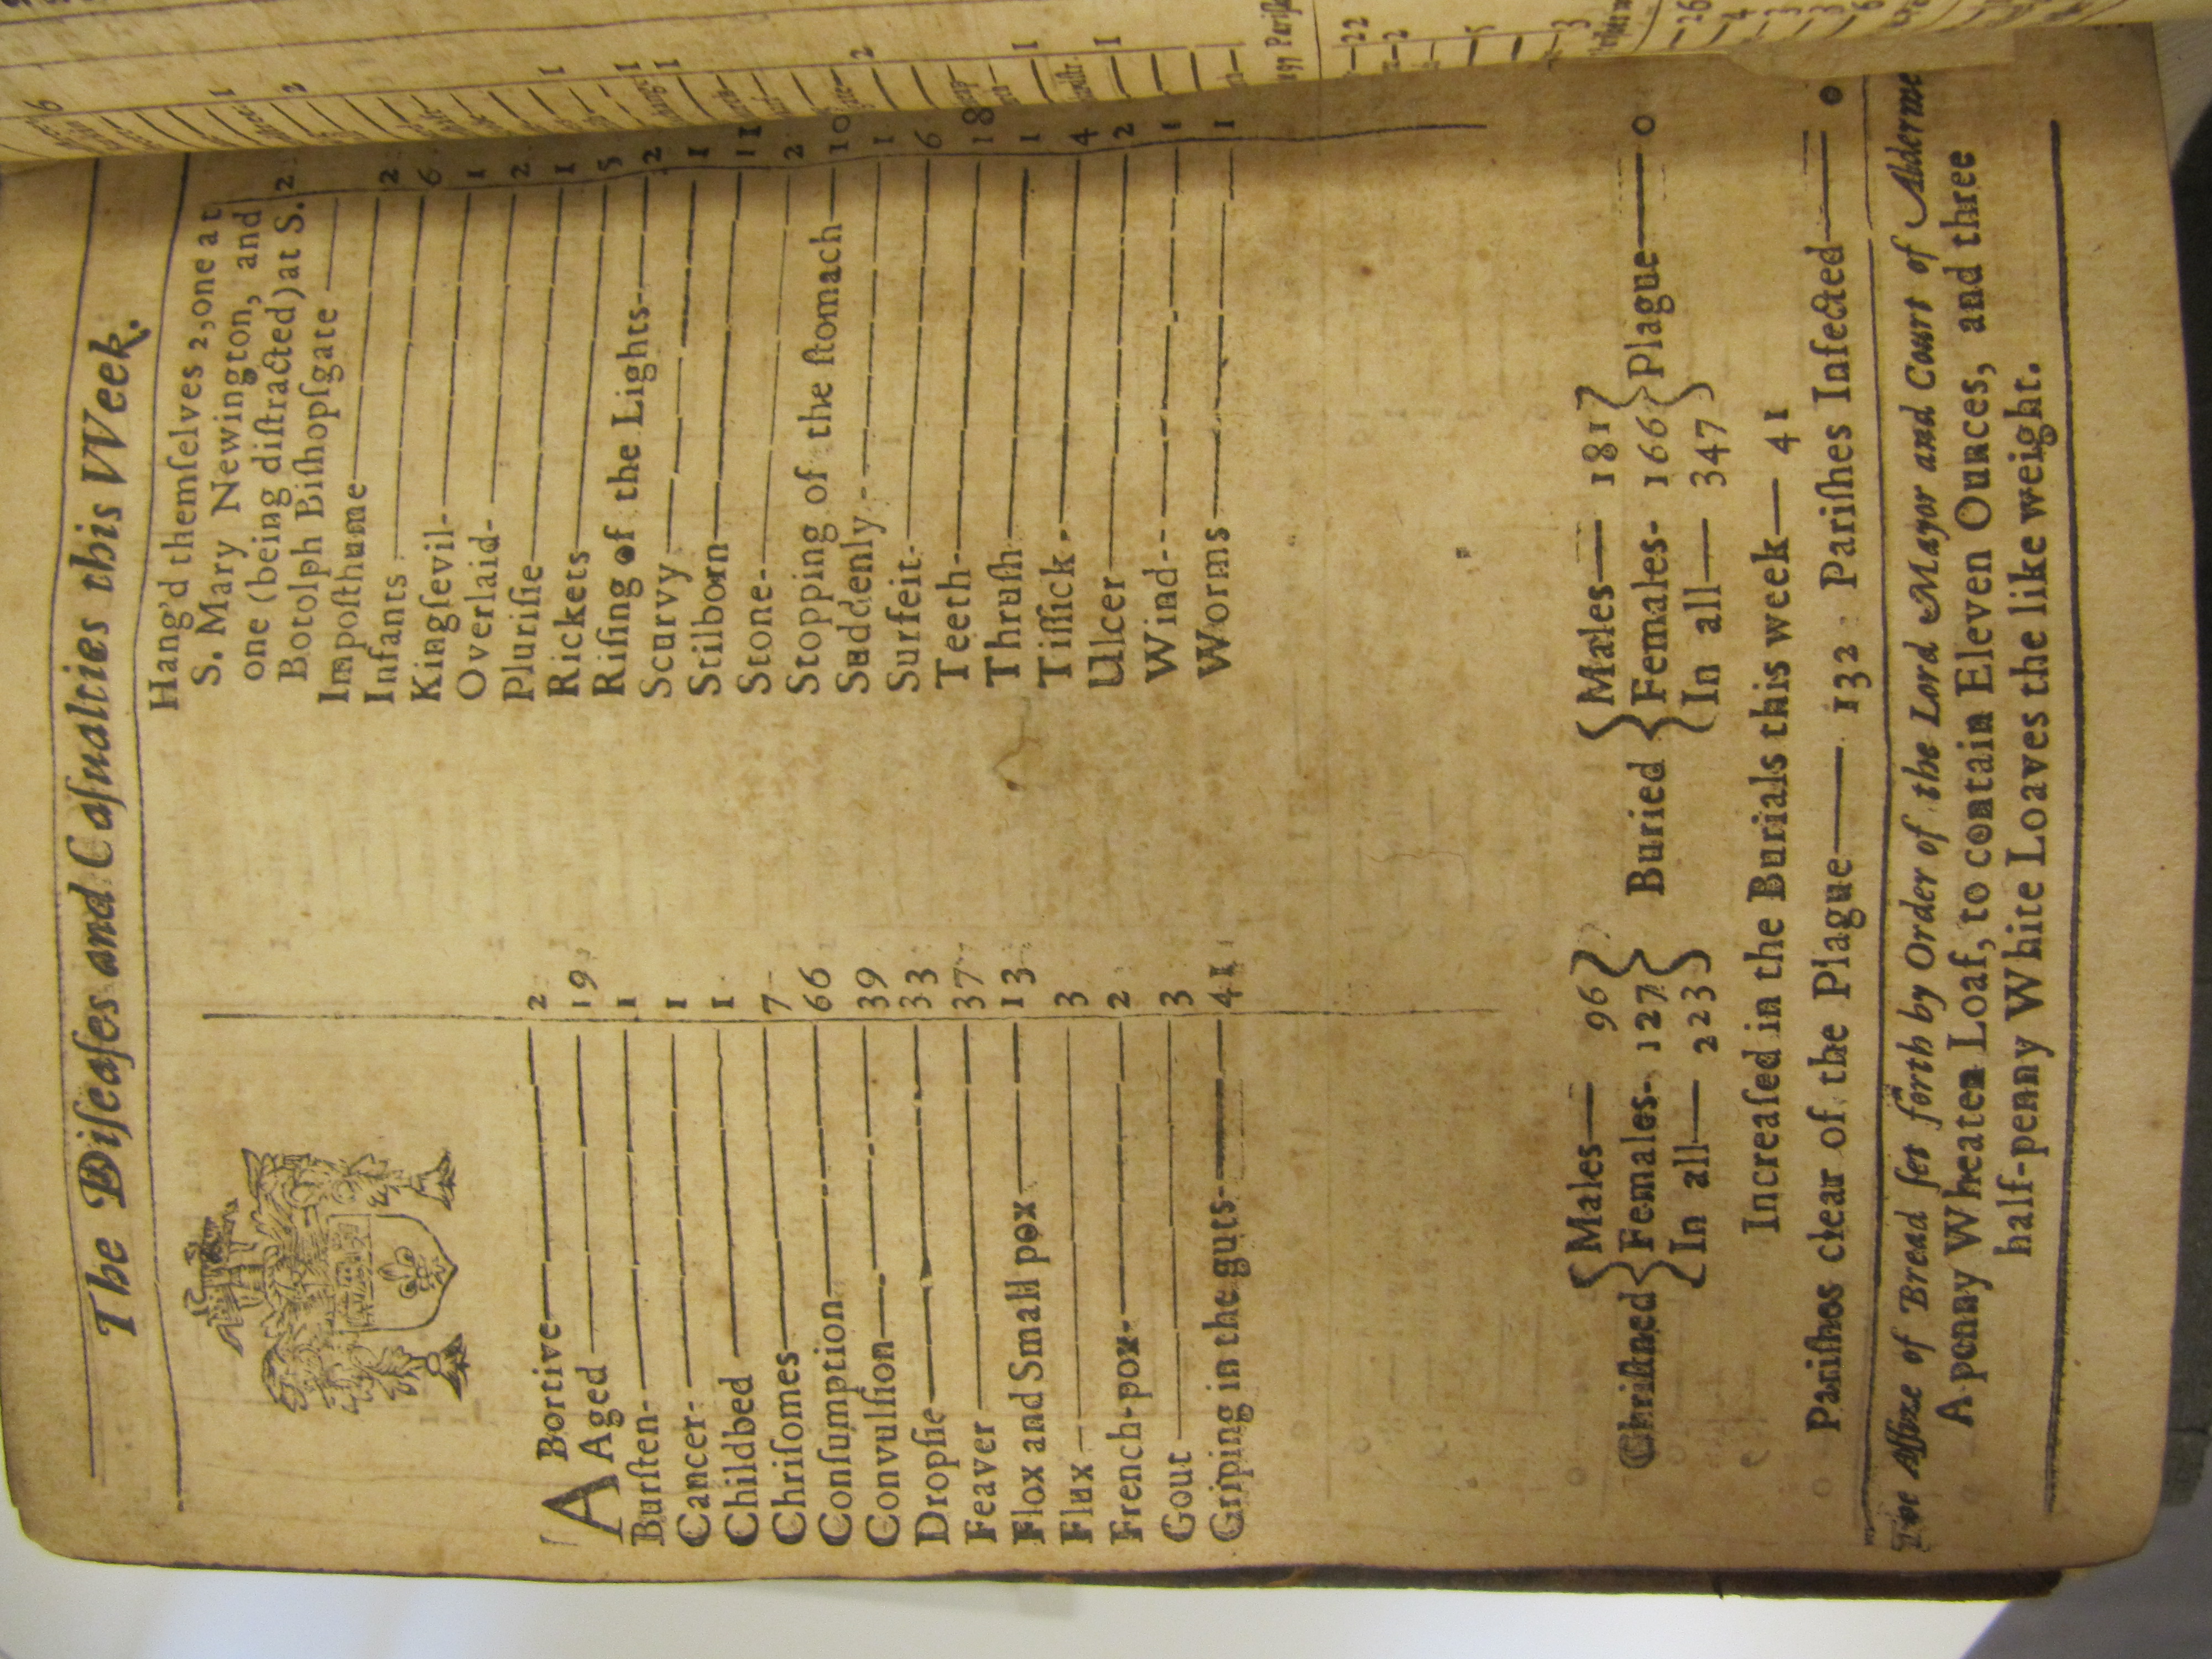 The Diſeaſes and Caſualties this Week.
ABortive 2
Aged 19
Burſten 1
Cancer 1
Childbed 1
Chriſomes 7
Conſumption 66
Convulſion 39
Dropſie 33
Feaver 37
Flox and Small pox 13
Flux 3
French-pox 2
Gout 3
Griping in the guts 41
Hang'd themſelves 2, one at
S. Mary Newington, and
one (being diſtracted) at S.
Botolph Biſhopſgate 2
Impoſthume 2
Infants 6
Kingſevil 1
Overlaid 2
Pluriſie 1
Rickets 5
Riſing of the Lights 2
Scurvy 1
Stilborn 11
Stone 2
Stopping of the ſtomach 10
Suddenly 1
Surfeit 6
Teeth 18
Thruſh 1
Tiſſick 4
Ulcer 2
Wind 1
Worms 1
Chriſtned { Males 96 Females 127 In all 223 }
Buried { Males 181 Females 166 In all 347 } Plague 0
Increaſed in the Burials this week 41
Pariſhes clear of the Plague 132 Pariſhes Infected 0
The Aſſize of Bread ſet forth by Order of the Lord Mayor and Court of Alderme
A penny Wheaten Loaf, to contain Eleven Ounces, and three
half-penny White Loaves the like weight.